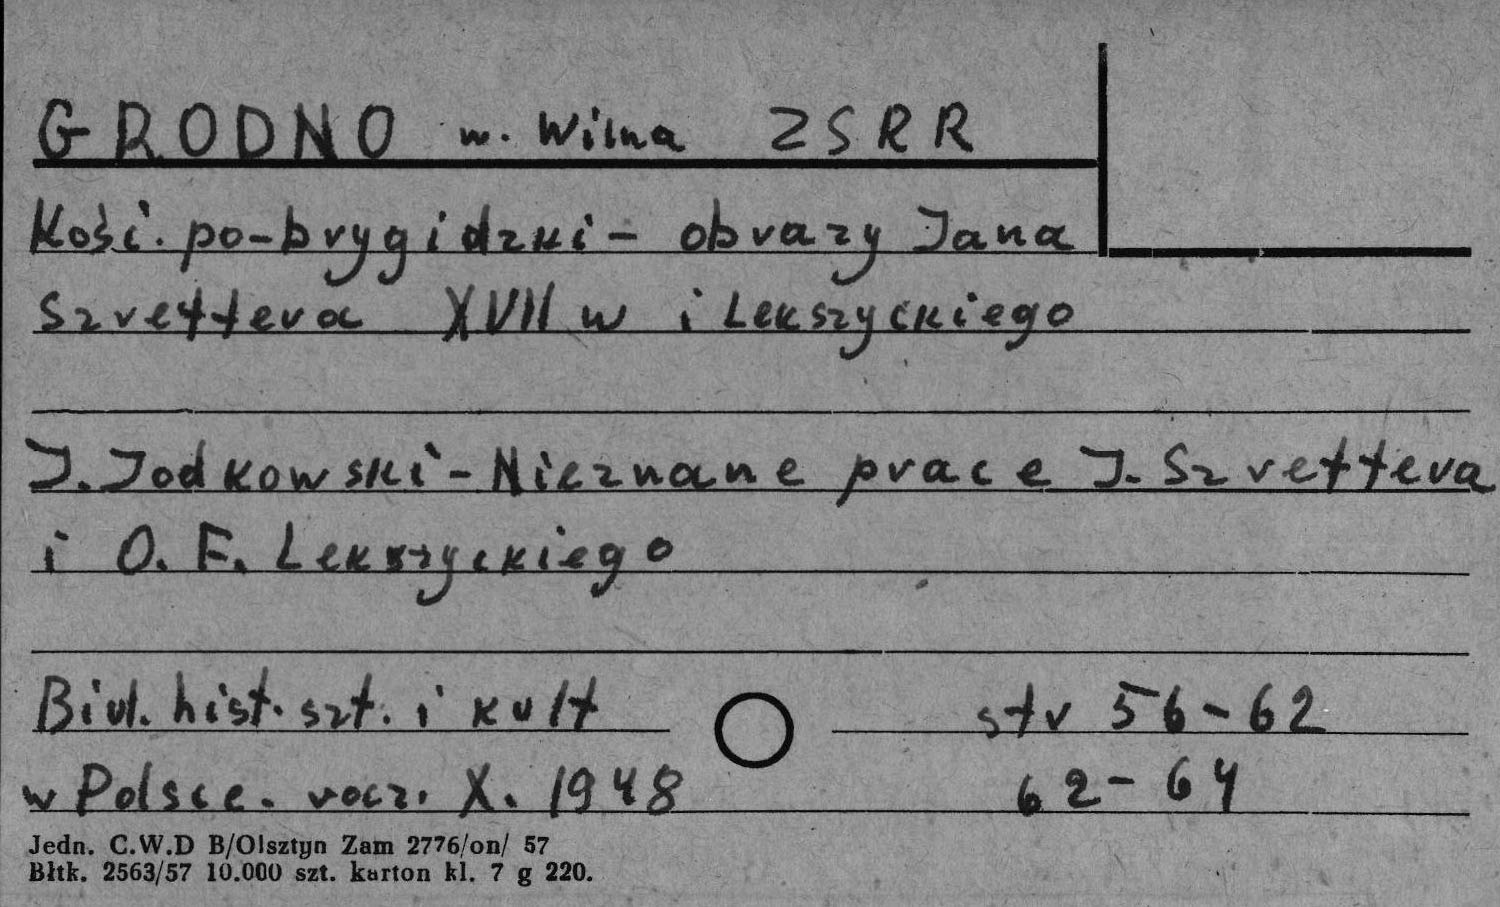 GRODNO w. Wilna ZSRR
Kość. po-brygidzki - obrazy Jana
Szrettera XVII w i Lekszyckiego
J. Jodkowski - Nieznane prace J. Szrettera
i O. F. Lekszyckiego
Biul. hist. szt. i kult str 56-62
w Polsce. rocz. X. 1948 62-64
Jedn. C.W.D B/Olsztyn Zam 2776/on/ 57
Błtk. 2563/57 10.000 szt. karton kl. 7 g 220.